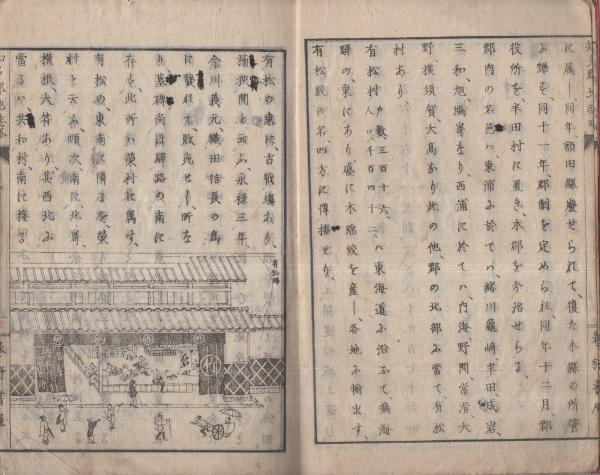 に属し同年、額田縣廢せられて、復た本縣の所管
ふ歸す、同十一年、郡制を定められ、同年十二月、郡
役所を半田村に置き、本郡を今治せらる、
郡内の名邑ハ東浦ふ於てハ、緒川、龜崎、半田、成岩、
三和、旭、等なり、西浦に於てハ、内海、野間、常滑、大
野、横須賀、大高なり、此の他、郡の北部ふ當て、有松
村あり、
有松村、戸數三百十六、人口千四百四十二、ハ東海道ふ沿ふて、鳴海
驛の東にあり、盛に木綿絞を産し、各地ふ輸出す、
有松絞の名、四方に傳播せり、
有松の東に古戰塲あり、
桶狹間と云ふ、永禄三年
今川義元、織田信長の爲
に襲はれて、敗死せし所な
り、墓碑尚ほ驛路の南に
存す、此所ハ榮村に屬す、
有松の東南に隣るを榮
村と云ふ、順次南に北﨑、
横根、大符あり、其西北ふ
當るハ、共和村、南に接する